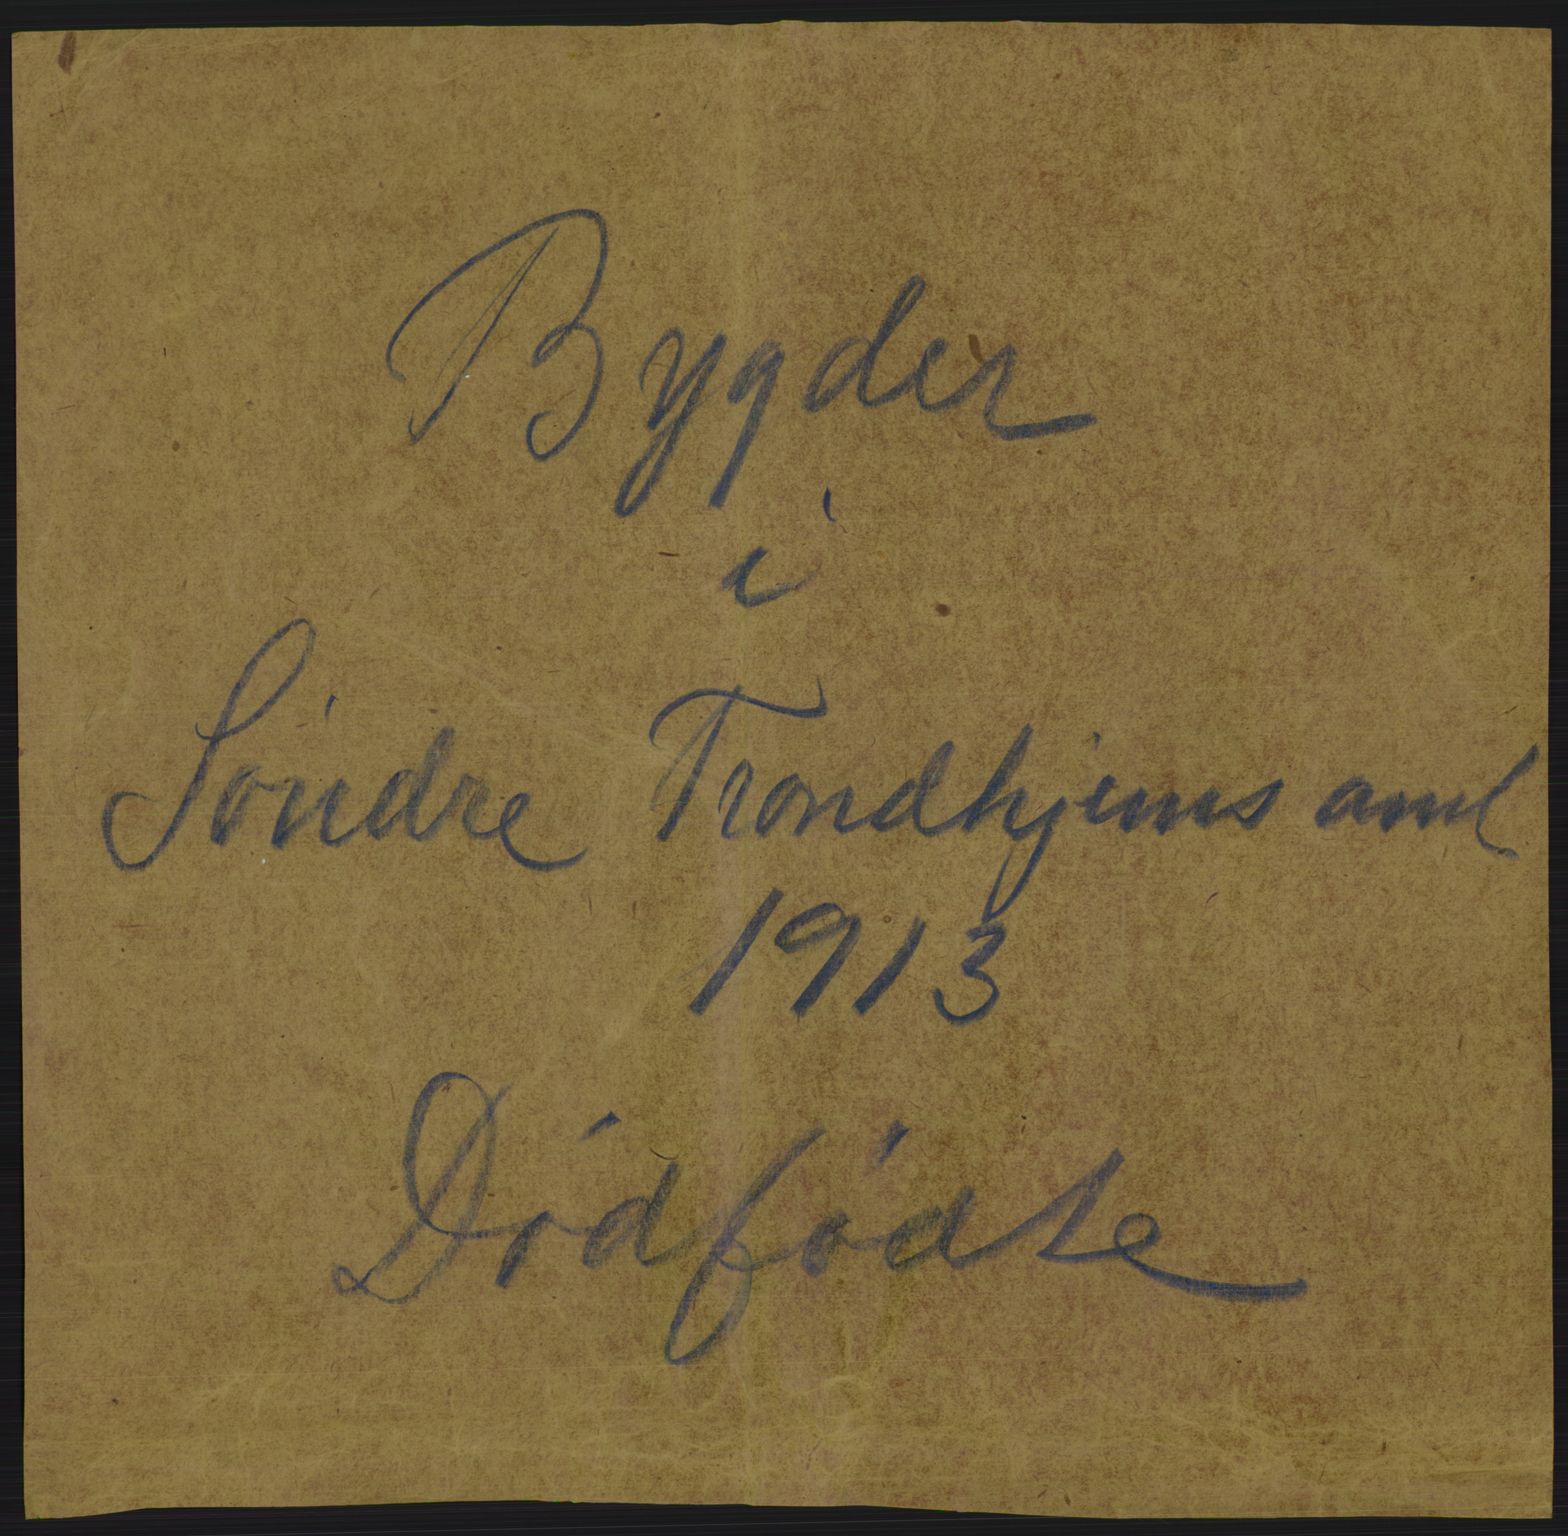 Bygder
i
Söndre Trondhjems amt
1913
Dödfödte